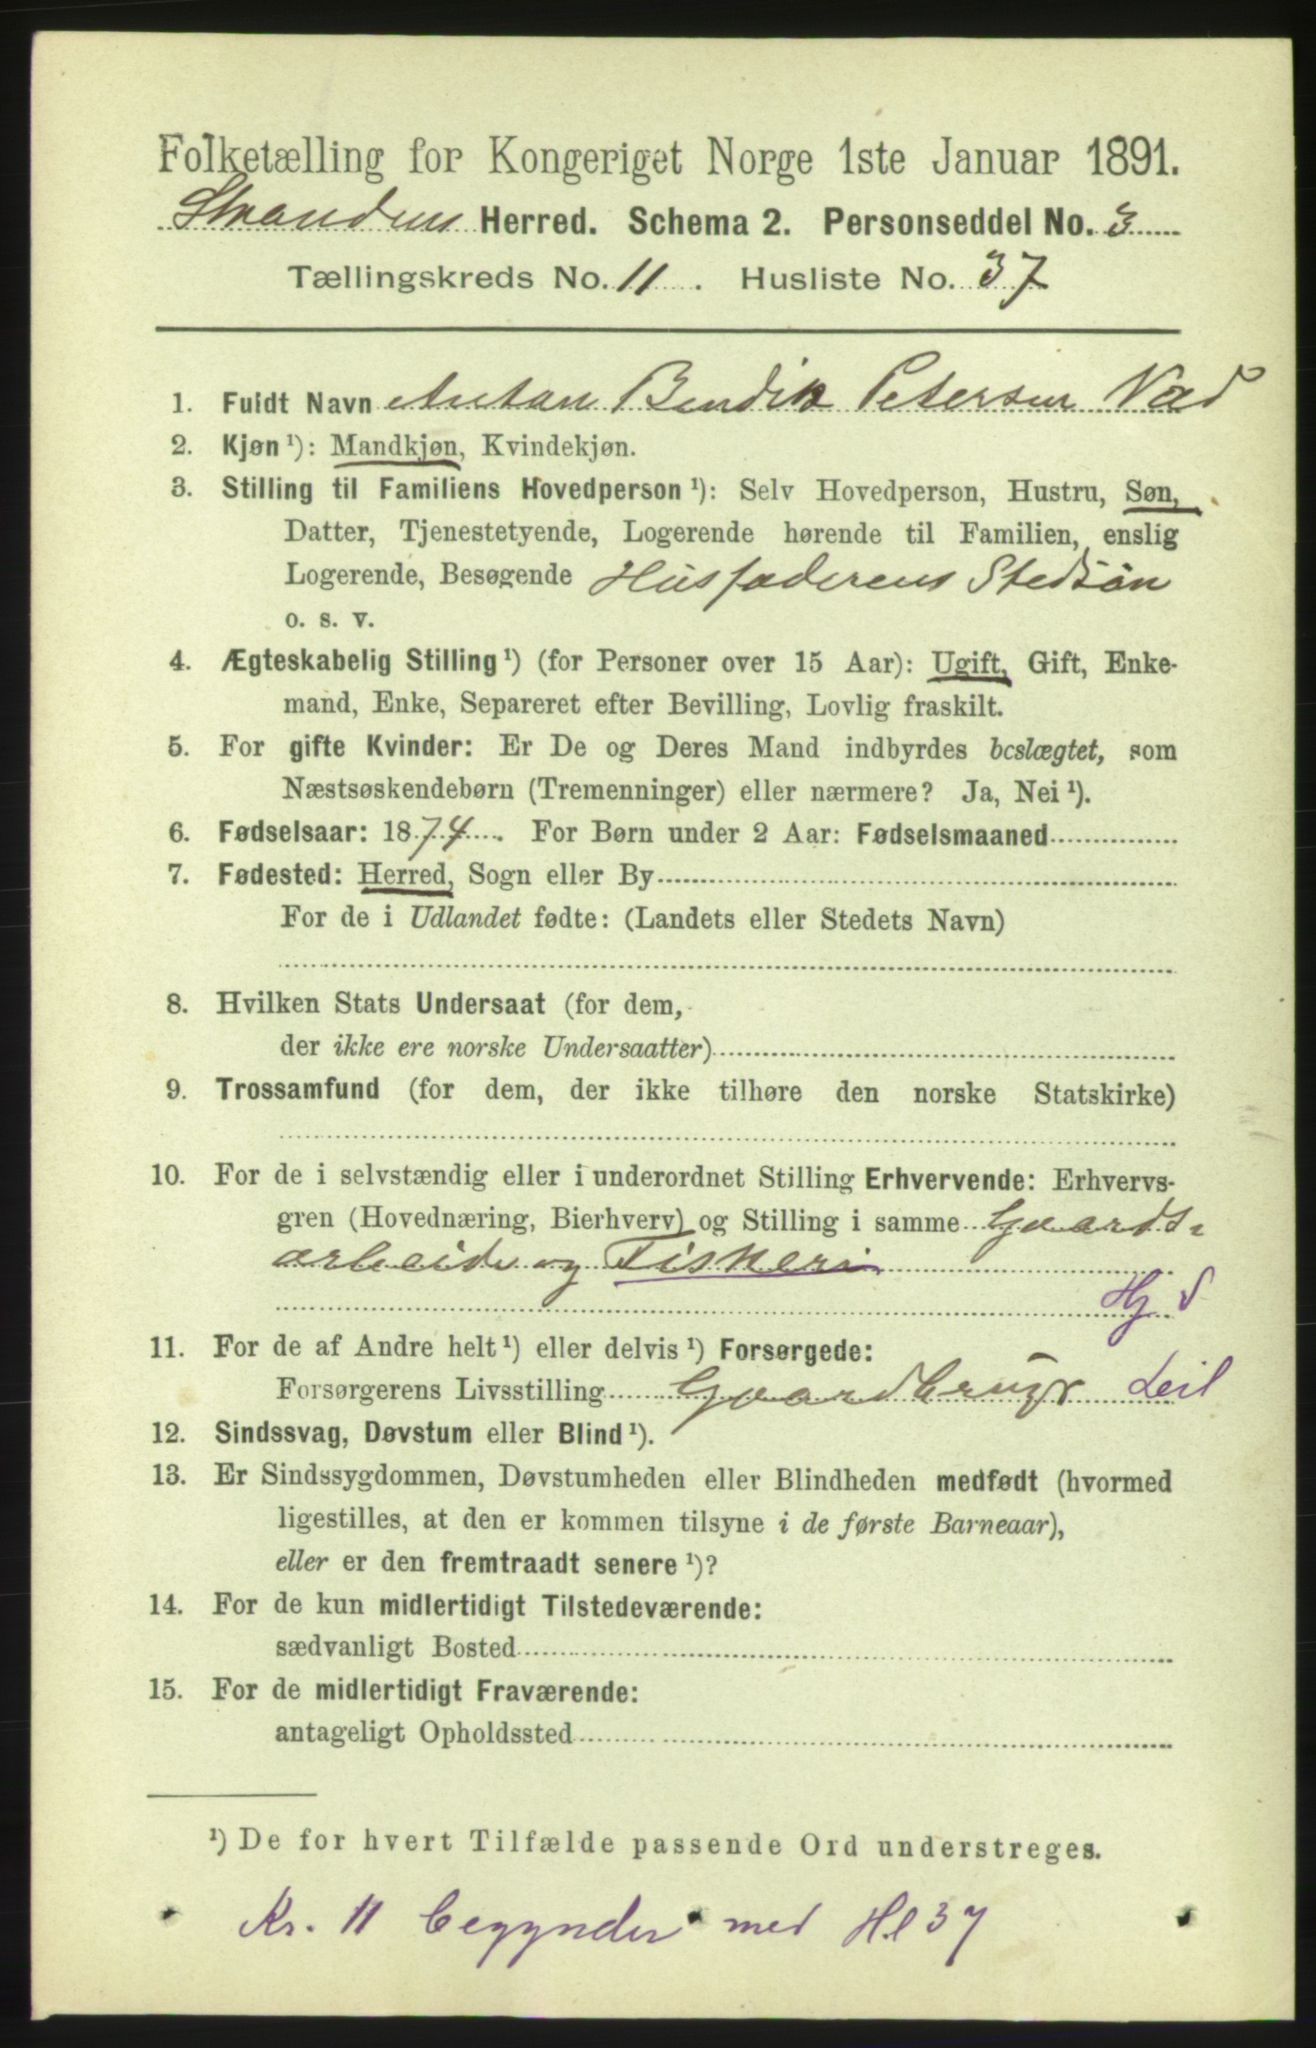 Folketælling for Kongeriget Norge 1ste Januar 1891.
Strandens Herred. Schema 2. Personseddel No. 3
Tællingskreds No. 11. Husliste No. 37
1. Fuldt Navn Anton Bendik Petersen Vad
2. Kjøn ¹): Mandkjøn, Kvindekjøn.
3. Stilling til Familiens Hovedperson ¹): Selv Hovedperson, Hustru, Søn,
Datter, Tjenestetyende, Logerende hørende til Familien, enslig
Logerende, Besøgende Husfaderens Stedsøn
o. s. v.
4. Ægteskabelig Stilling ¹) (for Personer over 15 Aar): Ugift, Gift, Enke-
mand, Enke, Separeret efter Bevilling, Lovlig fraskilt.
5. For gifte Kvinder: Er De og Deres Mand indbyrdes beslægtet, som
Næstsøskendebørn (Tremenninger) eller nærmere? Ja, Nei ¹).
6. Fødselsaar: 1874. For Børn under 2 Aar: Fødselsmaaned
7. Fødested: Herred, Sogn eller By
For de i Udlandet fødte: (Landets eller Stedets Navn)
8. Hvilken Stats Undersaat (for dem,
der ikke ere norske Undersaatter)
9. Trossamfund (for dem, der ikke tilhøre den norske Statskirke)
10. For de i selvstændig eller i underordnet Stilling Erhvervende: Erhvervs-
gren (Hovednæring, Bierhverv) og Stilling i samme Gaards-
arbeide og Fiskeri
Hj S
11. For de af Andre helt ¹) eller delvis ¹) Forsørgede:
Forsørgerens Livsstilling Gaardbruger Leil
12. Sindssvag, Døvstum eller Blind ¹).
13. Er Sindssygdommen, Døvstumheden eller Blindheden medfødt (hvormed
ligestilles, at den er kommen tilsyne i de første Barneaar),
eller er den fremtraadt senere ¹)?
14. For de kun midlertidigt Tilstedeværende:
sædvanligt Bosted
15. For de midlertidigt Fraværende:
antageligt Opholdssted
¹) De for hvert Tilfælde passende Ord understreges.
Kr. 11 begynder med Hl 37